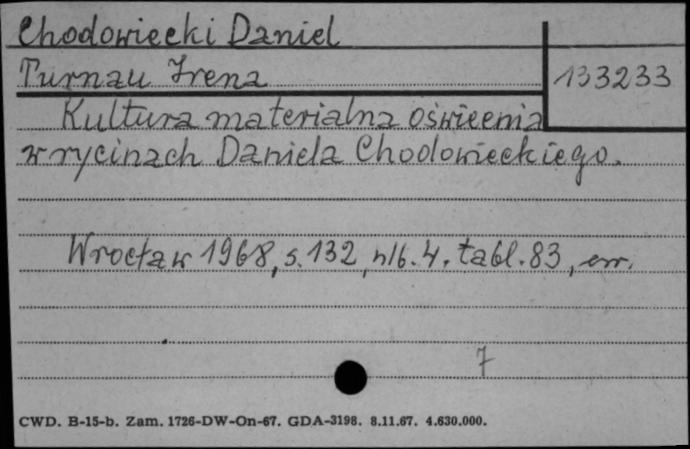 Chodowiecki Daniel
Turnau Irena
133233
Kultura materialna oświecenia
w rycinach Daniela Chodowieckiego.
Wrocław 1968, s. 132, nlb. 4. tabl. 83, err.
7
CWD. B-15-b. Zam. 1726-DW-On-67. GDA-3198. 8.11.67. 4.630.000.